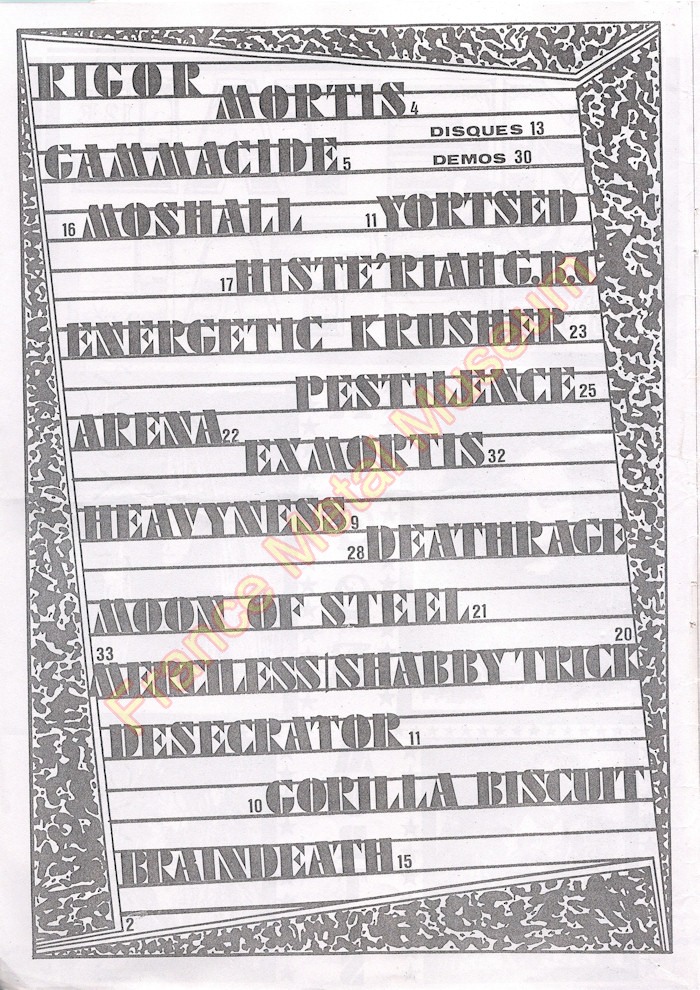 RIGOR
MORTIS 4
DISQUES 13
GAMMACIDE 5
DEMOS 30
16 MOSHALL
11 YORTSED
17 HISTE'RIAH G.B.C
ENERGETIC KRUSHER 23
PESTILENCE 25
ARENA 22
EXMORTIS 32
HEAVYNESS 9
28 DEATHRAGE
MOON OF STEEL 21
33 20
MERCILESS SHABBY TRICK
DESECRATOR 11
10 GORILLA BISCUIT
BRAINDEATH 15
2
France Metal Museum